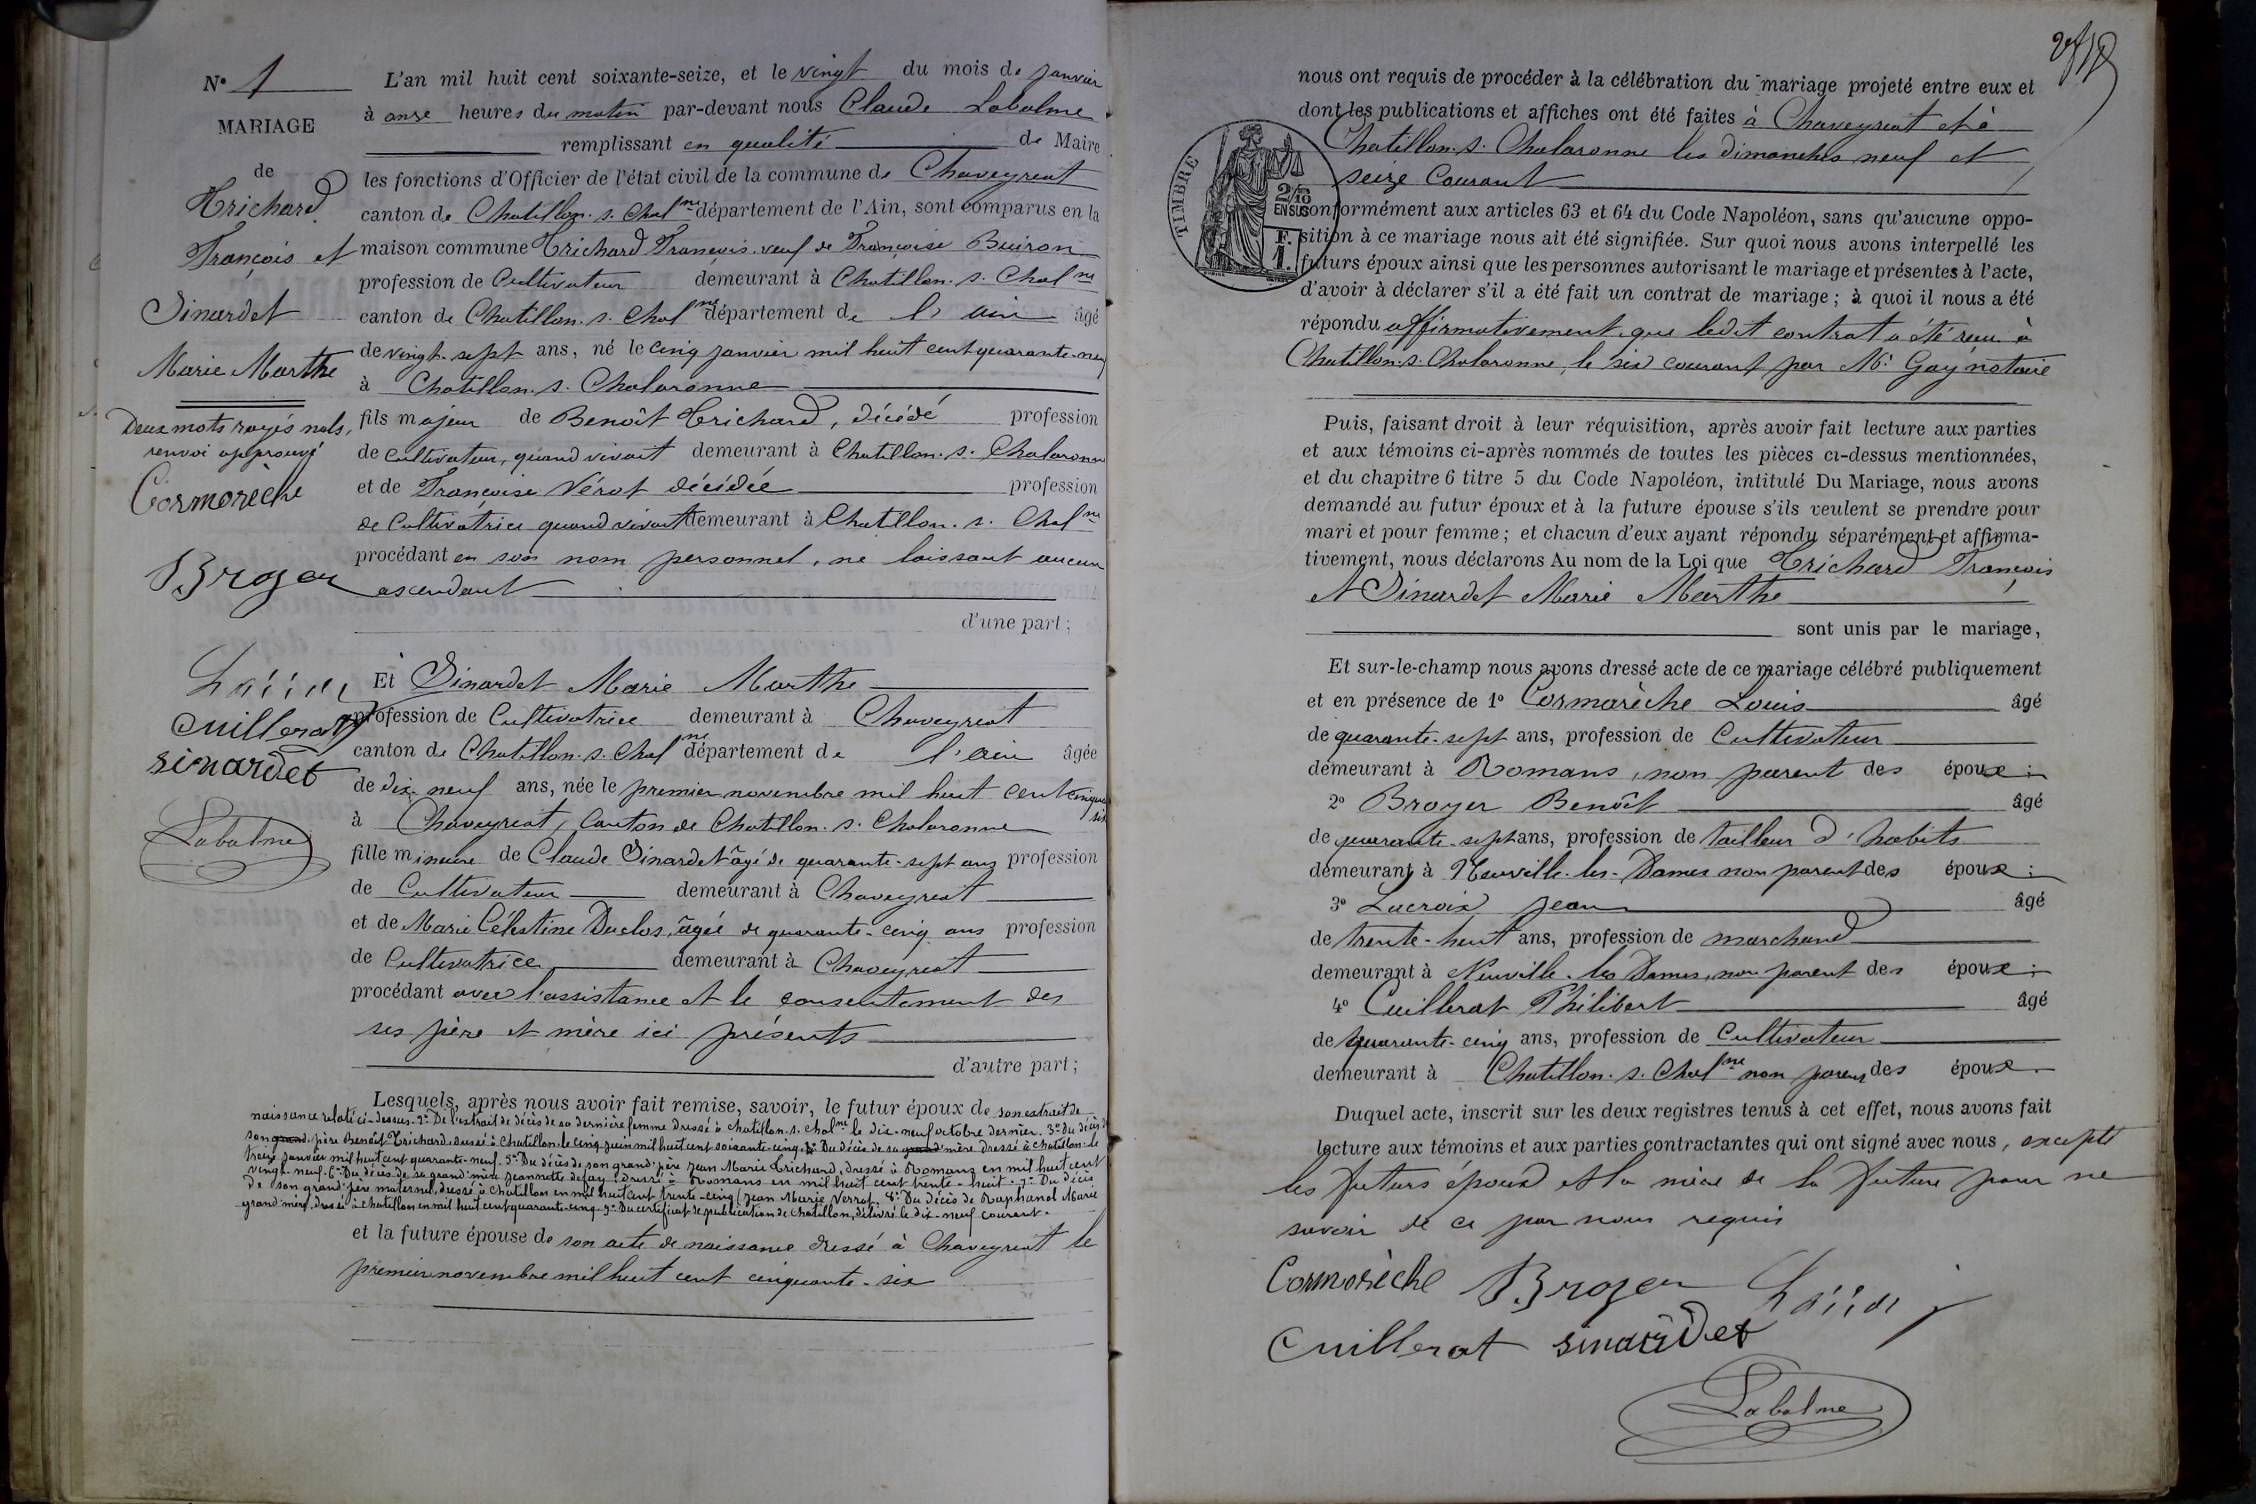 N° 1
MARIAGE
de
Trichard
François et
Sinardet
Marie Marthe
Deux mots rayés nuls,
renvoi approuvé
Cormorèche
Broyer
Cuillerat
sinardet
Labalme
L'an mil huit cent soixante-seize, et le vingt du mois de janvier
à onze heures du matin par-devant nous Claude Labalme
remplissant en qualité de Maire
les fonctions d'Officier de l'état civil de la commune de Chaveyriat
canton de Chatillon. s. Chal^ne département de l'Ain, sont comparus en la
maison commune Trichard François. veuf de Françoise Buiron
profession de Cultivateur demeurant à Chatillon. s. Chal^ne
canton de Chatillon. s. Chal^ne département de l'ain âgé
de vingt-sept ans, né le cinq janvier mil huit cent quarante-neuf
à Chatillon. s. Chalaronne
fils majeur de Benoît Trichard, décédé profession
de cultivateur, quand vivait demeurant à Chatillon. s. Chalaronne
et de Françoise Vérot décédée profession
de Cultivatrice quand vivait demeurant à Chatllon. s. Chal^ne
procédant en son nom personnel, ne laissant aucun
ascendant
d'une part;
Et Sinardet Marie Marthe
profession de Cultivatrice demeurant à Chaveyriat
canton de Chatillon. s. Chal^ne département de l'ain âgée
de dix-neuf ans, née le premier novembre mil huit cent cinquante six
à Chaveyriat, Canton de Chatillon. s. Chalaronne
fille mineure de Claude Sinardet âgé de quarante-sept ans profession
de Cultivateur demeurant à Chaveyriat
et de Marie Célestine Duclos, âgée de quarante-cinq ans profession
de Cultivatrice demeurant à Chaveyriat
procédant avec l'assistance et le consentement des
ses père et mère ici présents
d'autre part;
Lesquels, après nous avoir fait remise, savoir, le futur époux de son extrait de
naissance relaté ci-dessus. 2° De l'extrait de décès de sa dernière femme dressé à Chatillon. s. Chal^ne le dix-neuf octobre dernier. 3° Du décès de
son grand père Benoît Trichard, dressé à Chatillon le cinq juin mil huit cent soixante-cinq. 4° Du décès de sa grand mère dressé à Chatillon le
treize janvier mil huit cent quarante-neuf. 5° Du décès de son grand'père Jean Marie Trichard, dressé à Romans en mil huit cent
vingt-neuf. 6° Du décès de sa grand'mère Jeannette defay. dressé à Romans en mil huit cent trente-huit. 7° Du décès
de son grand'père maternel, dressé à Chatillon en mil huit cent trente-cinq (Jean Marie Verrot. 8° Du décès de Raphanel Marie
grand'mère, dressé à Chatillon en mil huit cent quarante-cinq. 9° Du certificat de publication de Chatillon, délivré le dix-neuf courant.
et la future épouse de son acte de naissance dressé à Chaveyriat le
premier novembre mil huit cent cinquante-six
TIMBRE
2/10
EN SUS
F.
1.
nous ont requis de procéder à la célébration du mariage projeté entre eux et
dont les publications et affiches ont été faites à Chaveyriat et à
Chatillon. s. Chalaronne les dimanches neuf et
seize Courant
conformément aux articles 63 et 64 du Code Napoléon, sans qu'aucune oppo-
sition à ce mariage nous ait été signifiée. Sur quoi nous avons interpellé les
futurs époux ainsi que les personnes autorisant le mariage et présentes à l'acte,
d'avoir à déclarer s'il a été fait un contrat de mariage; à quoi il nous a été
répondu affirmativement que ledit contrat a été reçu à
Chatillon. s. Chalaronne, le six courant par M^e Gay notaire
Puis, faisant droit à leur réquisition, après avoir fait lecture aux parties
et aux témoins ci-après nommés de toutes les pièces ci-dessus mentionnées,
et du chapitre 6 titre 5 du Code Napoléon, intitulé Du Mariage, nous avons
demandé au futur époux et à la future épouse s'ils veulent se prendre pour
mari et pour femme; et chacun d'eux ayant répondu séparément et affirma-
tivement, nous déclarons Au nom de la Loi que Trichard François
et Sinardet Marie Marthe
sont unis par le mariage,
Et sur-le-champ nous avons dressé acte de ce mariage célébré publiquement
et en présence de 1° Cormorèche Louis âgé
de quarante-sept ans, profession de Cultivateur
demeurant à Romans, non parent des époux;
2° Broyer Benoît âgé
de quarante-sept ans, profession de tailleur d'habits
demeurant à Neuville-les-Dames non parent des époux;
3° Lacroix Jean âgé
de trente-huit ans, profession de marchand
demeurant à Neuville-les Dames, non parent des époux;
4° Cuillerat Philibert âgé
de quarante-cinq ans, profession de Cultivateur
demeurant à Chatillon. s. Chal^ne non parent des époux.
Duquel acte, inscrit sur les deux registres tenus à cet effet, nous avons fait
lecture aux témoins et aux parties contractantes qui ont signé avec nous, excepté
les futurs époux et la mère de la future pour ne
savoir de ce par nous requis
Cormorèche Broyer
Cuillerat sinardet
Labalme